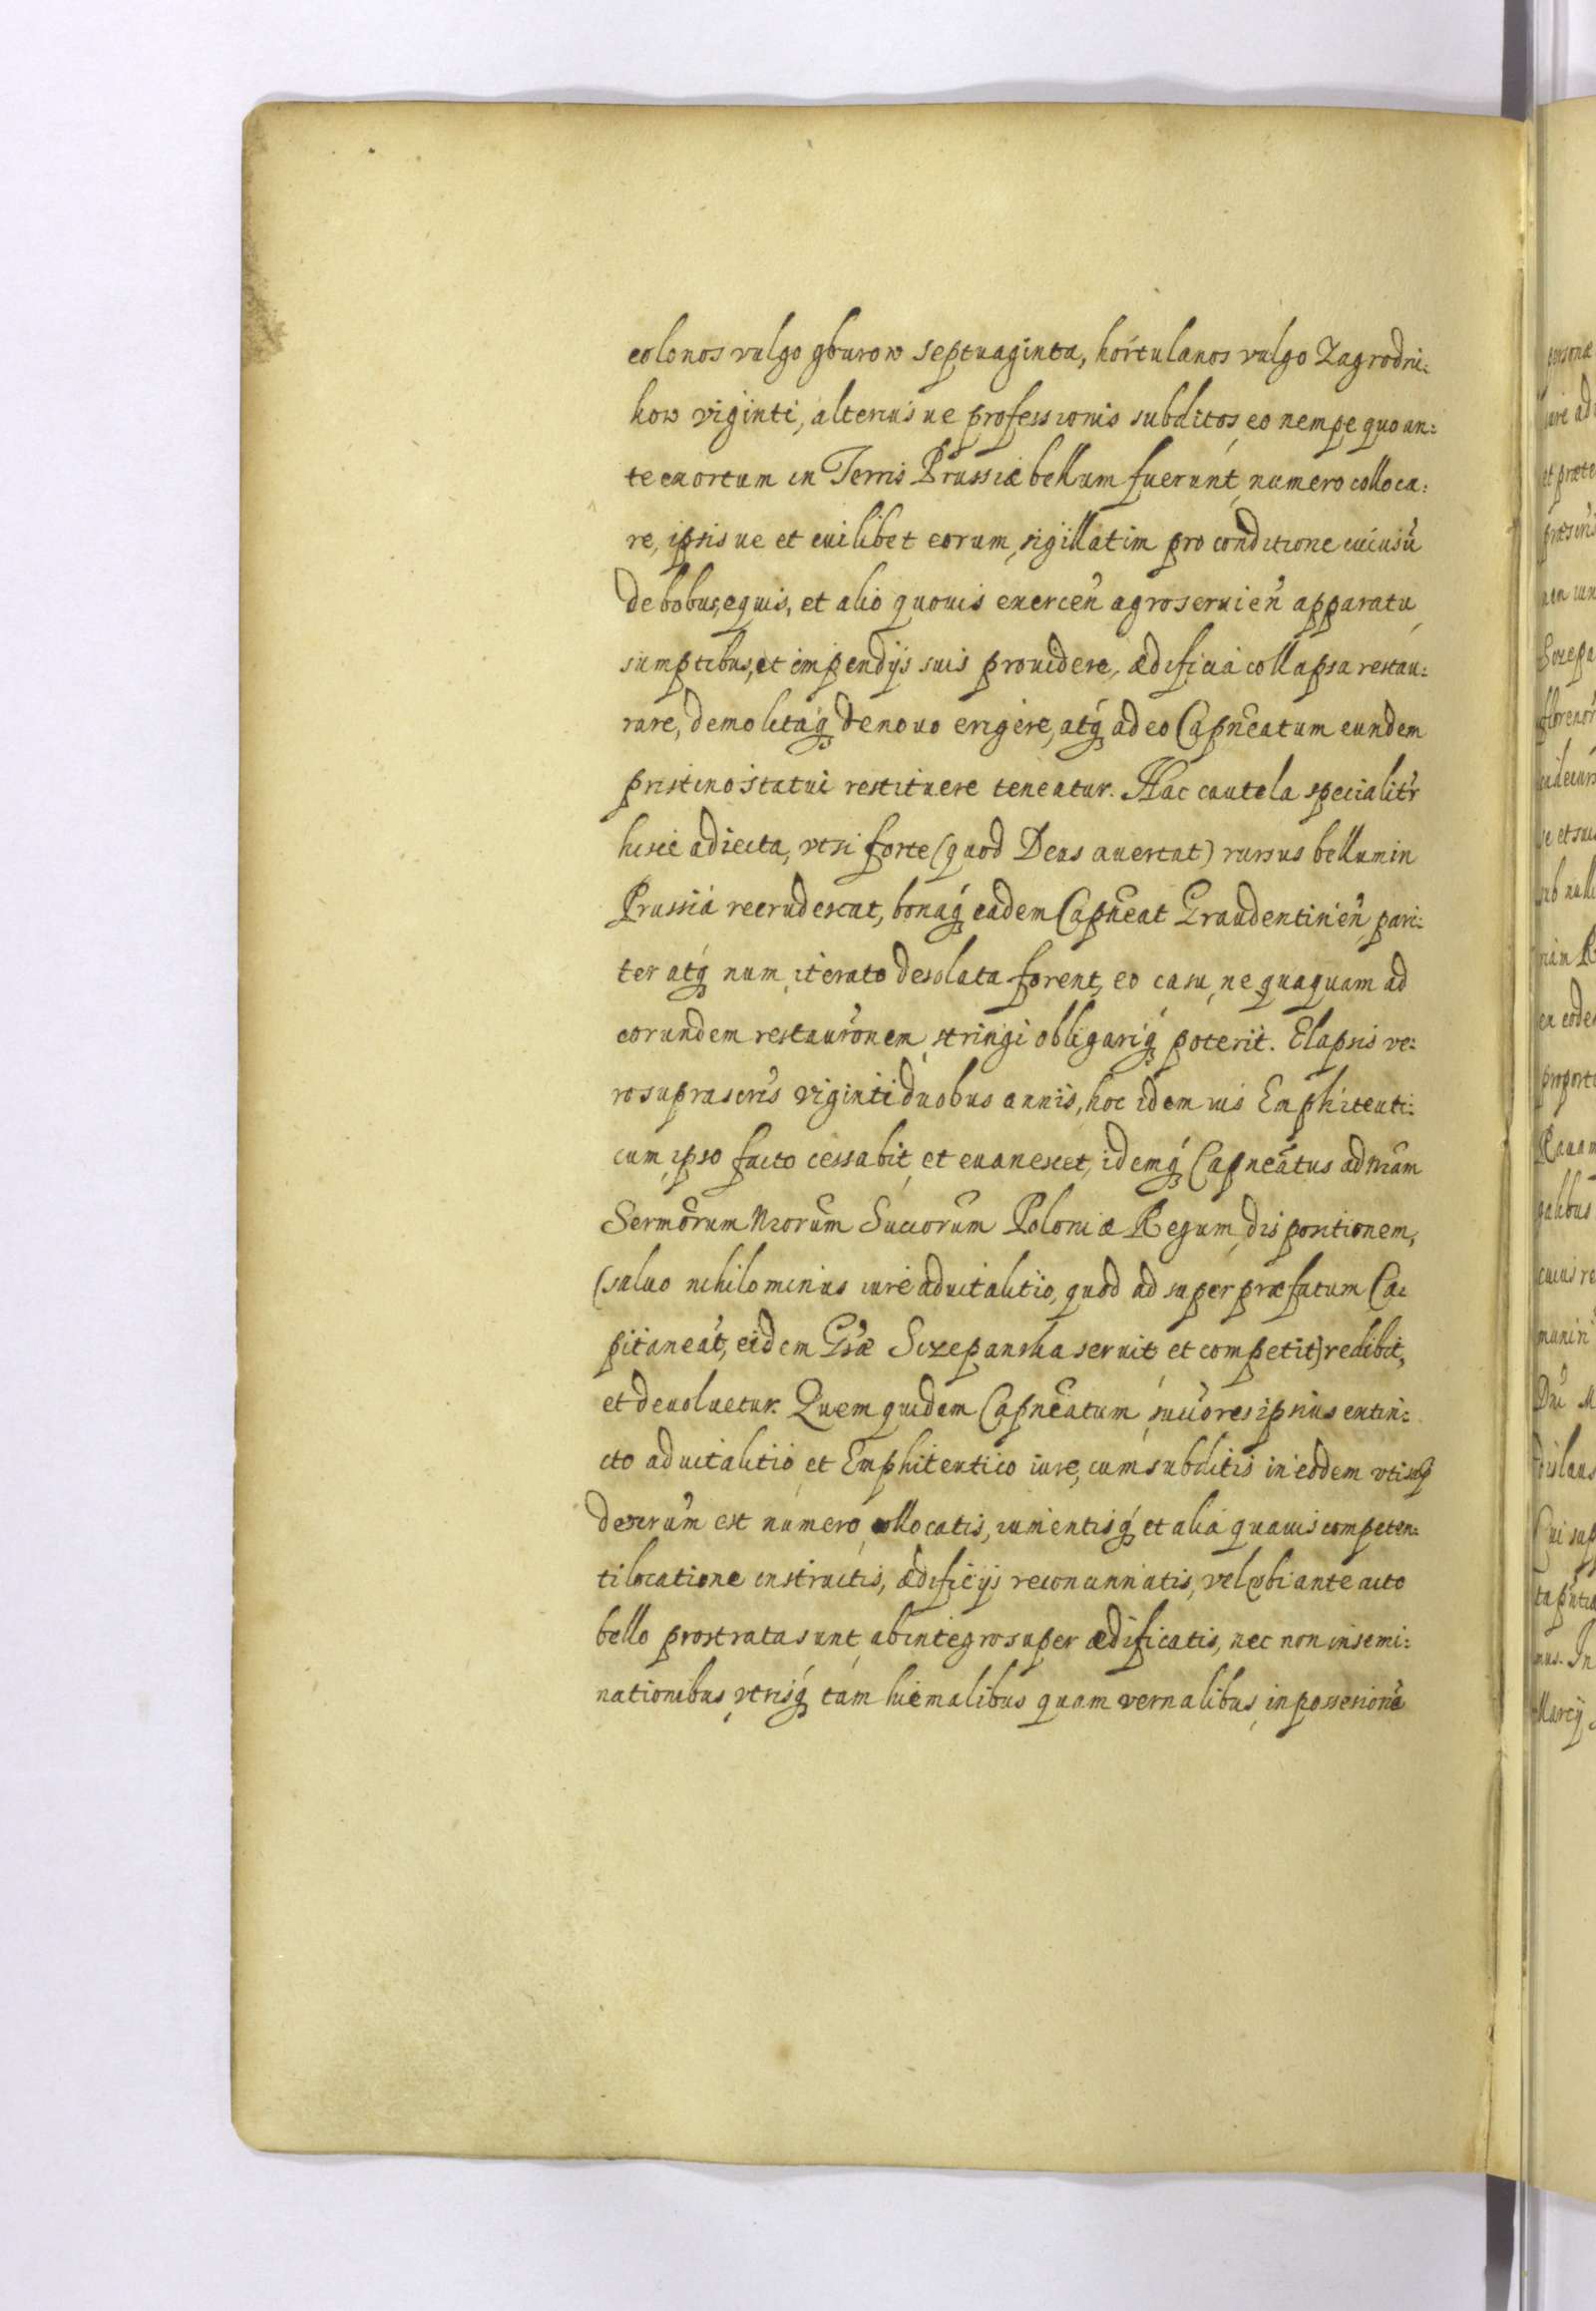 colonos vulgo gburow septuaginta, hortulanos vulgo Zagrodni:
kow viginti, alterius ue professionis subditos, eo nempe quo an:
te exortum in Terris Prussiæ bellum fuerunt, numero colloca:
re, ipsis ue et cuilibet eorum, sigillatim pro conditione cuiusũ
de bobus, equis, et alio quouis exerceñ agro seruieñ apparatu,
sumptibus, et impendijs suis prouidere, ædificia collapsa restau:
rare, demolitaq́ꝫ denouo erigere, atq́ꝫ adeo Capñeatum eundem
pristino statui restituere teneatur. Hac cautela specialitr̃
hisce adiecta, vt si forte (quod Deus auertat) rursus bellum in
Prussia recrudescat, bonaq́ꝫ eadem Capñeat Graudentineñ, pari:
ter atq́ꝫ num, iterato desolata forent, eo casu, ne quaquam ad
eorundem restaurõnem, stringi obligariq́ꝫ poterit. Elapsis ve:
ro suprascris̃ viginti duobus annis, hoc idem ius Emphiteuti:
cum, ipso facto cessabit, et euanescet, idemq́ꝫ Capneãtus ad nrãm
Sermõrum Nrorũm Succorũm Poloniæ Regum, dispositionem,
(saluo nihilominus iure aduitalitio, quod ad super præfatum Ca:
pitaneat̃, eidem Gsæ̃ Sczepanska seruit et competit) redibit,
et deuoluetur. Quem quidem Capñeatum, succõres ipsius extin:
cto aduitalitio, et Emphiteutico iure, cum subditis in eodem vti suꝑ
descrũm est numero, collocatis, iumentisq́ꝫ et alia quauis competen:
ti locatione instructis, ædificijs reconcinnatis, vel vbi ante acto
bello prostrata sunt, ab integro super ædificatis, nec non insemi:
nationibus, vtrisq́ꝫ tam hiemalibus quam vernalibus, in possesionẽ